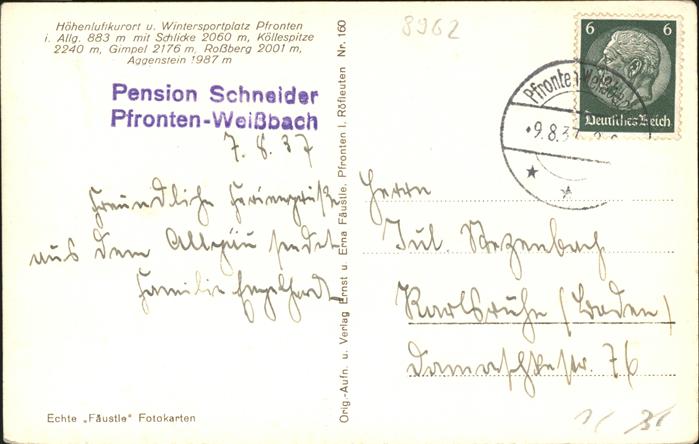 Höhenluftkurort u. Wintersportplatz Pfronten
i. Allg. 883 m mit Schlicke 2060 m, Köllespitze
2240 m, Gimpel 2176 m, Roßberg 2001 m,
Aggenstein 1987 m
Pension Schneider
Pfronten-Weißbach
7.8.37
Freundliche Feriengrüße
aus dem Allgäu sendet
Familie Engelhardt
Echte „Fäustle" Fotokarten
Orig.-Aufn. u. Verlag Ernst u. Erna Fäustle, Pfronten i. Röfleuten Nr. 160
8962
6 6
Deutsches Reich
Pfronten-Weißbach
9.8.37
Herrn
Jul. Stezenbach
Karlsruhe (Baden)
str. 76